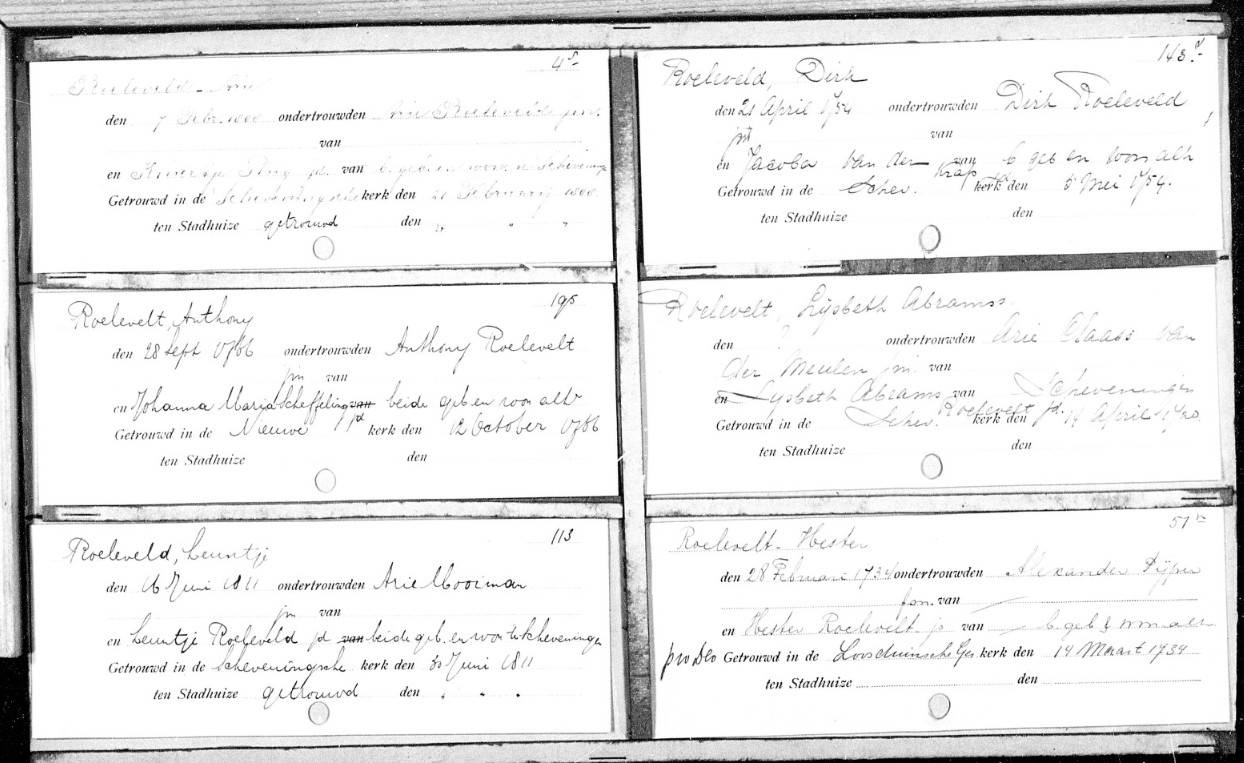 4
Roeleveld Arie
den 7 Febr. 1800 ondertrouwden Arie Roeleveld jm.
van
en jd. van b. geb en woon. te Schevening
Getrouwd in de Scheveningsche kerk den 21 Februarij 1800.
ten Stadhuize getrouwd den " " "
195
Roelevelt, Anthony
den 28 Sept 1786 ondertrouwden Anthony Roelevelt
jm van
en Johanna Maria Scheffeling van beide geb en woon alh
jd
Getrouwd in de Nieuwe kerk den 12 October 1786
ten Stadhuize den
113
Roeleveld, Leuntje
den 16 Juni 1811 ondertrouwden Arie Mooiman
jm van
en Leuntje Roeleveld jd van beide geb. en won te Scheveningen
Getrouwd in de Scheveningsche kerk den 30 Juni 1811
ten Stadhuize getrouwd den " " "
143
Roeleveld, Dirk
den 21 April 1754 ondertrouwden Dirk Roeleveld
jm van
en Jacoba van der Krap jd van b geb en woon alh
Getrouwd in de Schev. kerk den 5 Mei 1754.
ten Stadhuize den
Roelevelt, Lysbeth Abramss.
den ? ondertrouwden Arie Claass van
der Meulen jm. van
en Lysbeth Abrams van Scheveningen
Roelevelt jd.
Getrouwd in de Schev. kerk den 14 April
ten Stadhuize den
51
Roelevelt. Hester
den 28 Februari 1734 ondertrouwden Alexander Pijper
jm. van
en Hester Roelevelt jd van b. geb & won alh
pro Deo Getrouwd in de Loosduinsche Ges. kerk den 14 Maart 1734
ten Stadhuize den